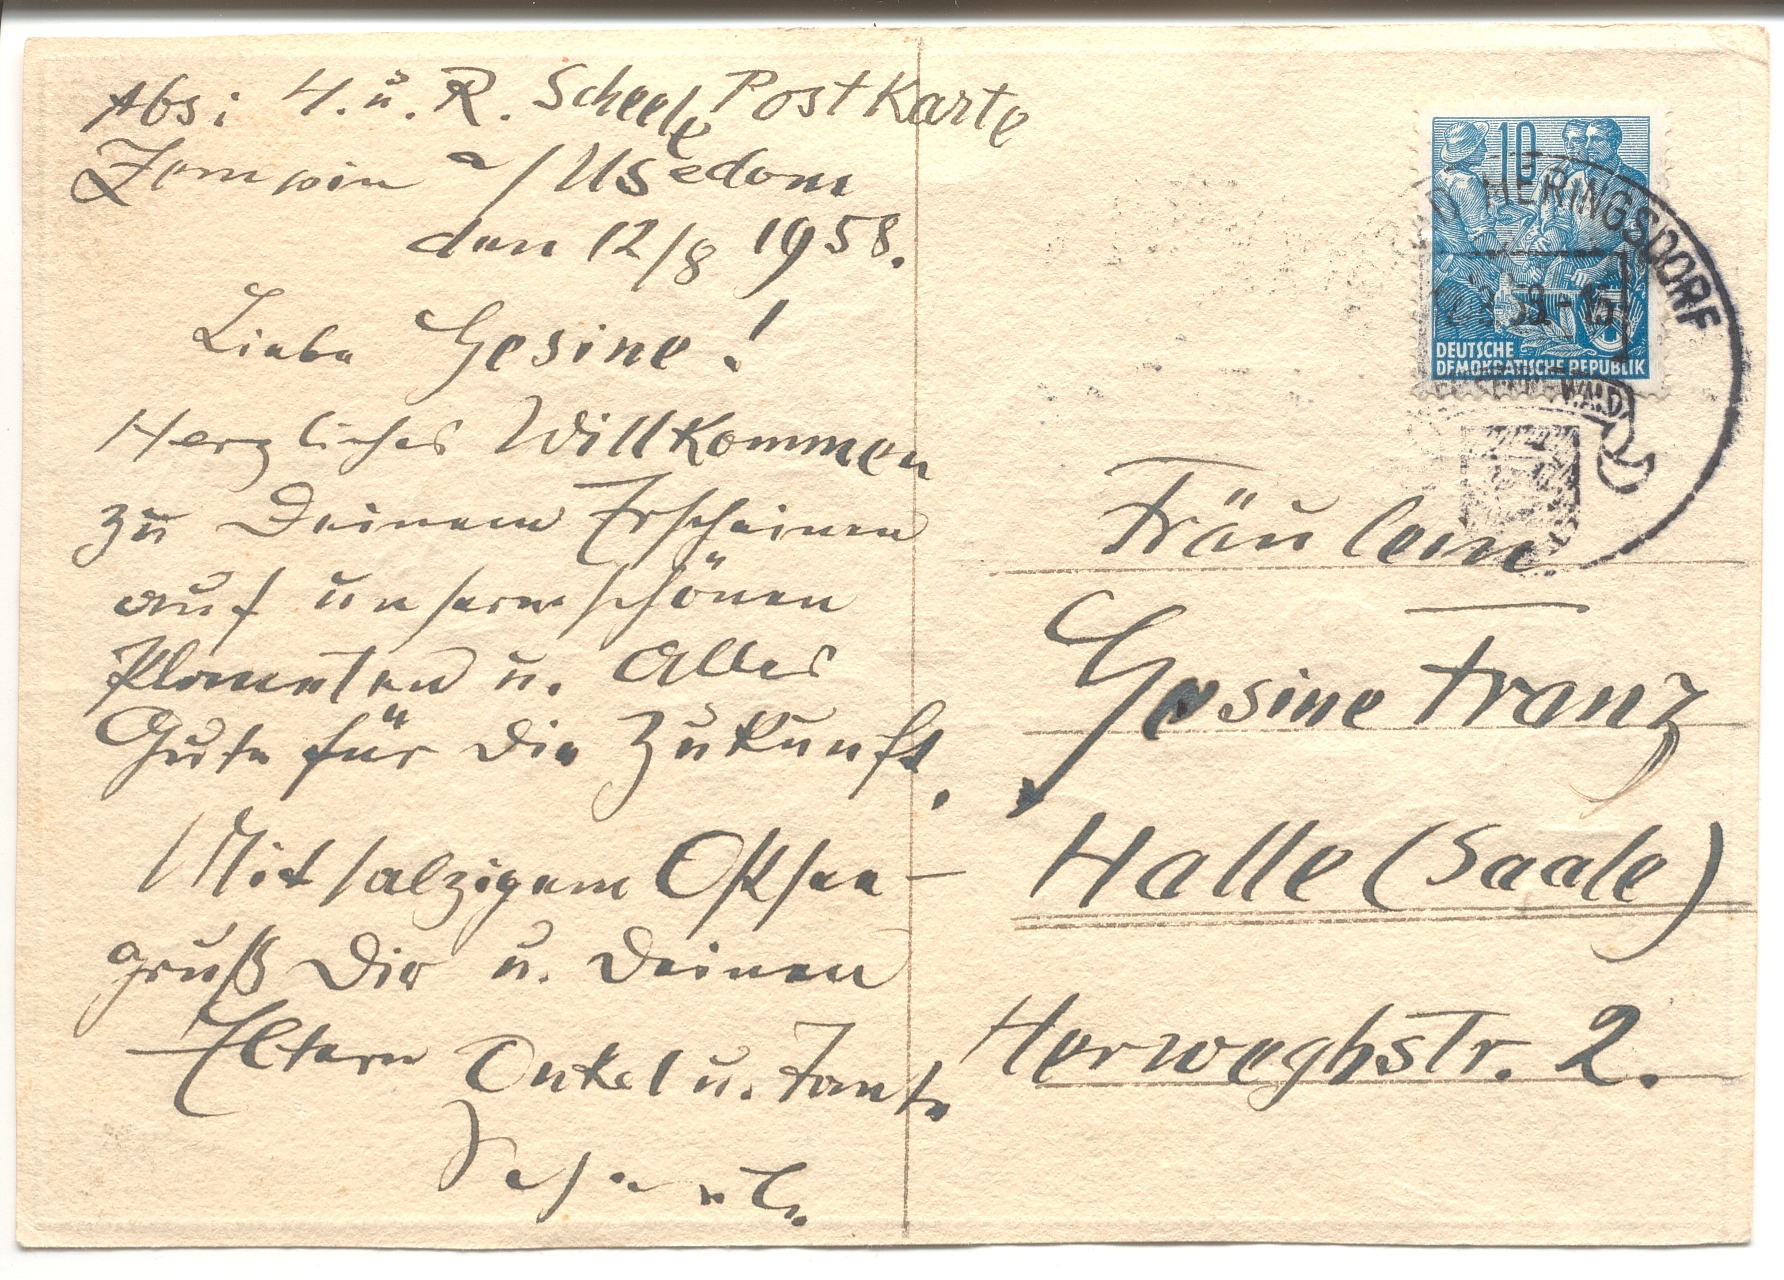 Abs: H. u. R. Scheele Postkarte
Zempin a/Usedom
den 12/8 1958.
Liebe Gesine!
Herzliches Willkommen
zu Deinem Erscheinen
auf unserem schönen
Planeten u. Alles
Gute für die Zukunft.
Mit salzigem Ostsee-
gruß Dir u. Deinen
Eltern Onkel u. Tante
10
HERINGSDORF
DEUTSCHE
DEMOKRATISCHE REPUBLIK
Fräulein
Gesine Franz
Halle (Saale)
Herweghstr. 2.